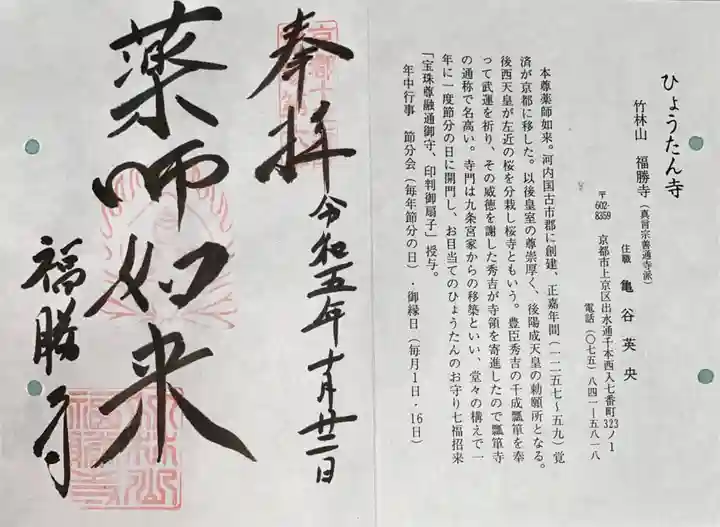 ひょうたん寺
竹林山　福勝寺（真言宗善通寺派）
住職　亀谷英央
〒602-8359　京都市上京区出水通千本西入七番町323ノ1
電話（〇七五）八四一ー五八一八
本尊薬師如来。河内国古市郡に創建、正嘉年間（一二五七〜五九）覚
済が京都に移した。以後皇室の尊崇厚く、後陽成天皇の勅願所となる。
後西天皇が左近の桜を分栽し桜寺ともいう。豊臣秀吉の千成瓢箪を奉
って武運を祈り、その威徳を謝した秀吉が寺領を寄進したので瓢箪寺
の通称で名高い。寺門は九条宮家からの移築といい、堂々の構えで一
年に一度節分の日に開門し、お目当てのひょうたんのお守り七福招来
「宝珠尊融通御守、印判御扇子」授与。
年中行事　節分会（毎年節分の日）・御縁日（毎月1日・16日）
奉拝　令和五年十月廿二日
薬師如来
福勝寺